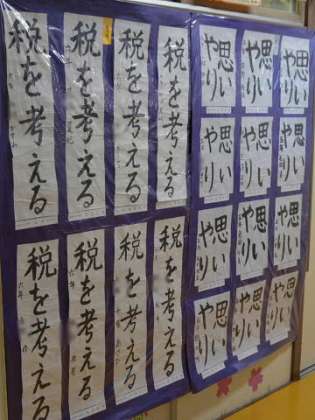 税を考える
税を考える
税を考える
税を考える
思いやり
思いやり
思いやり
思いやり
思いやり
思いやり
税を考える
税を考える
税を考える
税を考える
六年
六年
思いやり
思いやり
思いやり
思いやり
思いやり
思いやり